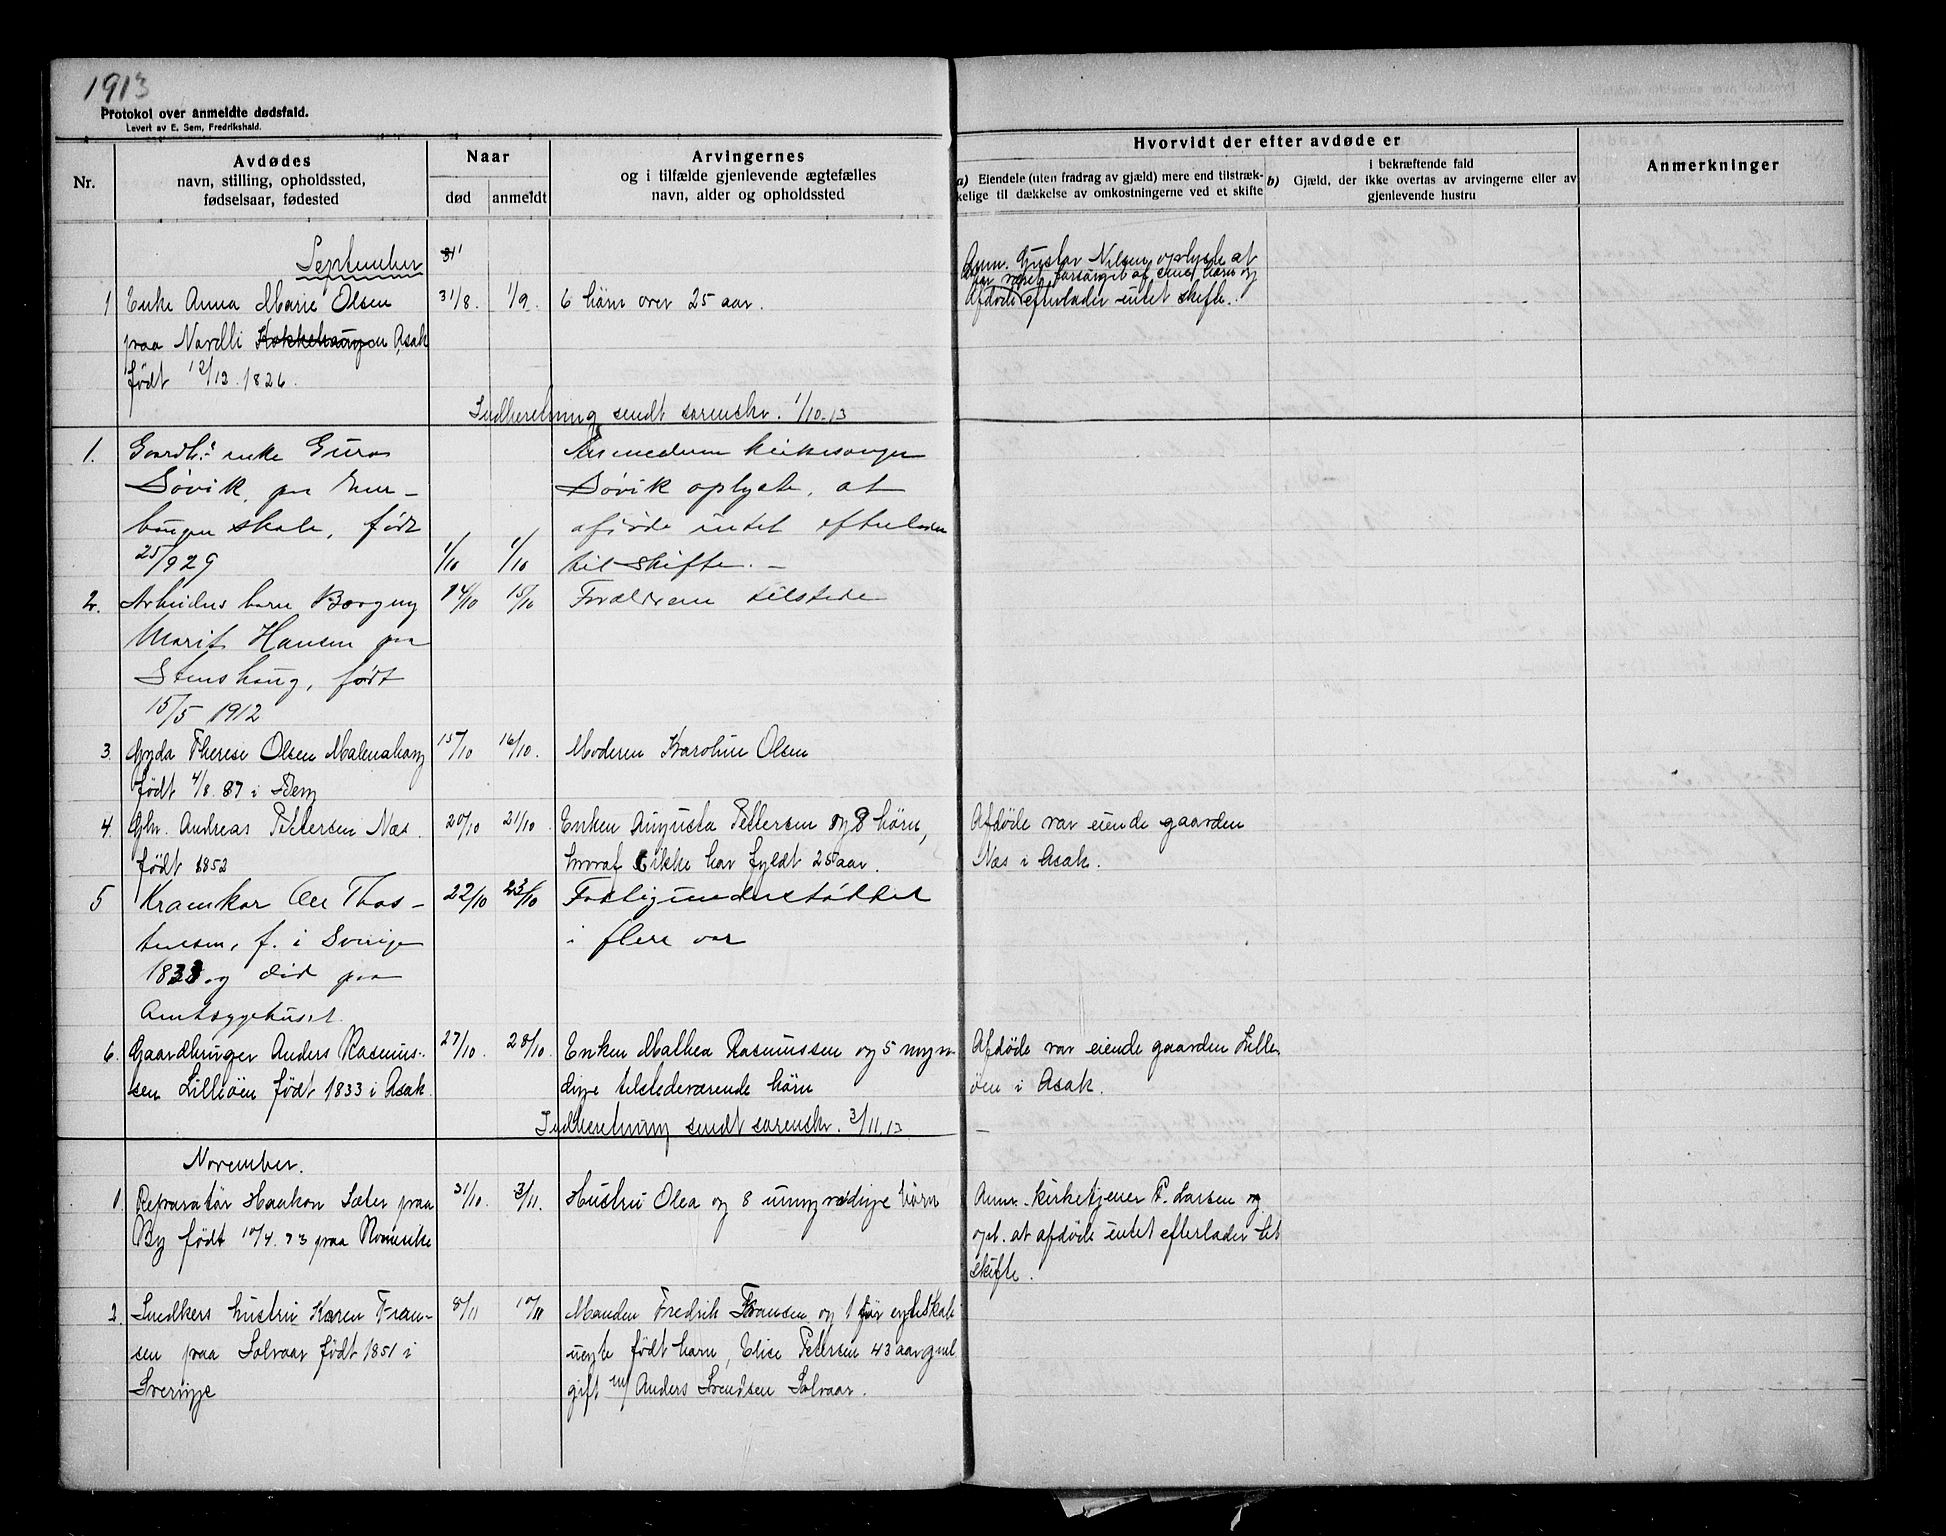 1913
Protokol over anmeldte dødsfald.
Levert av E. Sem, Fredrikshald.
Nr.
Avdødes
navn, stilling, opholdssted,
fødselsaar, fødested
Naar
død
anmeldt
Arvingernes
og i tilfælde gjenlevende ægtefælles
navn, alder og opholdssted
Hvorvidt der efter avdøde er
a) Eiendele (uten fradrag av gjæld) mere end tilstræk-
kelige til dækkelse av omkostningerne ved et skifte
b) Gjæld, der i bekræftende fald
ikke overtas av arvingerne eller av
gjenlevende hustru
Anmerkninger
September
1 Enke Anna Marie Olsen 31/8. 1/9 6 børn over 25 aar.
paa Nordli Kokkehaugen Asak
født 12/12 1826.
Anm. Gustav Nilsen oplyste at
har været forsørget af sine børn og
Afdøde efterlader intet skifte.
Indberetning sendt sorenskr. 1/10-13
1. Gaardbr. enke Guro
Søvik, paa
skole, født
25/9 29 1/10 1/10
Anmelderen kirkesanger
Søvik oplyste, at
afdøde intet efterlader
til skifte. –
2. Arbeiders barn Borgny 14/10 15/10 Forældrene tilstede
Marit Hansen paa
Stenshaug, født
15/5 1912
3. Gyda Therese Olsen Malenshaug 15/10 16/10. Moderen Karoline Olsen
født 4/8. 87 i Berg
4. Gbr. Andreas Pettersen Næs. 20/10 21/10. Enken Augusta Pettersen og 8 børn,
født 1852 hvoraf 6 ikke har fyldt 25 aar.
Afdøde var eiende gaarden
Næs i Asak.
5 Kramkar Ole Thos- 22/10 23/10 Fattigunderstøttet
tensen, f. i Sverige i flere aar
og død paa
Amtssygehuset.
6. Gaardbruger Anders Rasmus- 27/10. 28/10. Enken Mathea Rasmussen og 5 myn-
sen Lilleøen født 1833 i Asak. dige tilstedeværende børn
Afdøde var eiende gaarden Lille
øen i Asak.
Indberetning sendt sorenskr. 3/11.13
November.
1. Reparatør Haakon Sæter paa 31/10. 3/11. Hustru Olea og 8 umyndige børn
By født 10/4. 73 paa Romerike
Anm. kirketjener P. Larsen og
opl. at afdøde intet efterlader til
skifte.
2. Snedkers hustru Karen Fran- 8/11 10/11 Manden Fredrik Fransen og 1 før egteskab
sen paa Solvaar født 1851 i uegte født barn, Elise Petersen 43 aar gml.
Sverige gift m/ Anders Svendsen Solvaar.